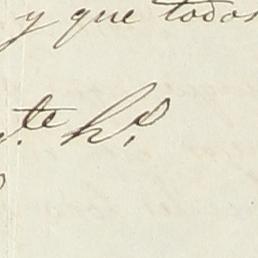 y que todos
te hº